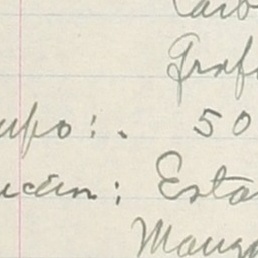 Carb
Graf
upo: . 50
ución: Esta
Mang